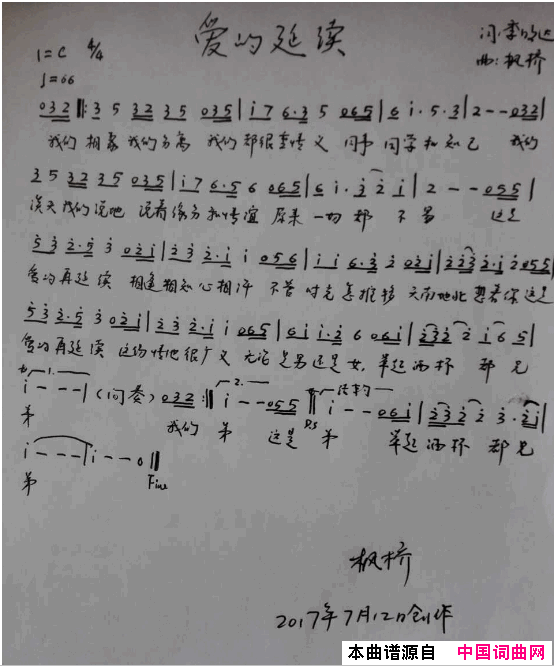 爱的延续
1=C 4/4
词:李
曲:枫桥
♩=66
032 ‖: 3 5 32 35 035 | i 7 6·3 5 065 | 6 i · 5 · 3 | 2 - - 032 |
我们相聚我们分离 我们都很重情义 同事同学和知己 我们
35 32 35 035 | i 7 6·5 6 065 | 6 i · 3 2 i | 2 - - 055 |
谈天我们说地 说着缘分和情谊 原来一切都不易 这是
5 3 2·5 3 02i | 2 3 2·i i 056 | i i 6·3 2 02i | 223 2·i 2055 |
爱的再延续 相逢相知心相许 不管时光怎推移 天南地北想着你 这是
5 3 2·5 3 02i | 2 3 2·i i 065 | 6i i·2 6 06i | 232 2 i 6 5 |
爱的再延续 这份情他很广义 无论是男还是女 举起酒杯都兄
1. 2. 结束句
i - - - | (间奏) 032 :‖ i - - 055 ‖ i - - 06i | 2 3 2 2 3·2i |
弟 我们 弟 这是 D.S 弟 举起酒杯 都兄
i - - - | i - - 0 ‖
弟 Fine
枫桥
2017年7月12日创作
本曲谱源自 中国词曲网